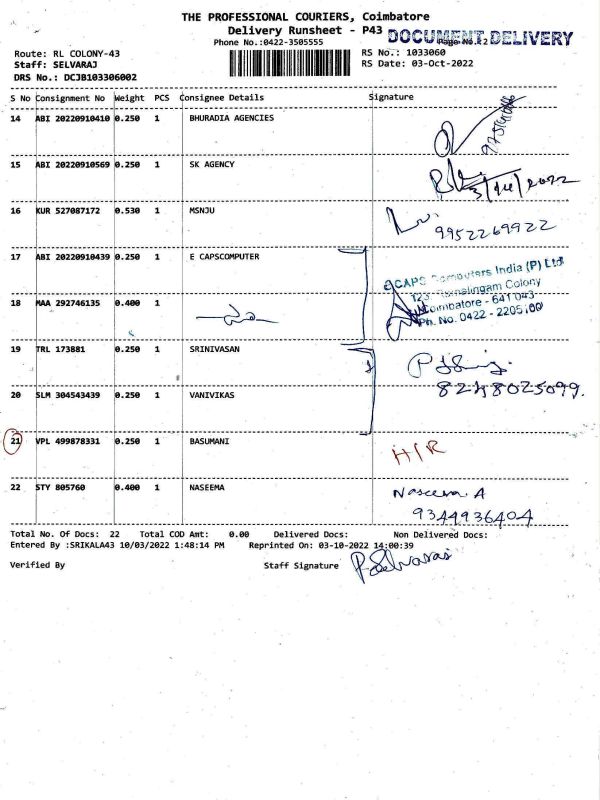 THE PROFESSIONAL COURIERS, Coimbatore
Delivery Runsheet - P43
DOCUMENT DELIVERY
Phone No.:0422-3505555
Route: RL COLONY-43
RS No.: 1033060
Staff: SELVARAJ
RS Date: 03-Oct-2022
DRS No.: DCJB103306002
S No Consignment No Weight PCS Consignee Details Signature
14 ABI 20220910410 0.250 1 BHURADIA AGENCIES
15 ABI 20220910569 0.250 1 SK AGENCY
16 KUR 527087172 0.530 1 MSNJU
9952269922
17 ABI 20220910439 0.250 1 E CAPSCOMPUTER
CAPS Computers India (P) Ltd
123, Ramalingam Colony
18 MAA 292746135 0.400 1
Coimbatore - 641 043
Ph. No. 0422 - 2205100
19 TRL 173881 0.250 1 SRINIVASAN
8248025099.
20 SLM 304543439 0.250 1 VANIVIKAS
21 VPL 499878331 0.250 1 BASUMANI
H/R
22 STY 805760 0.400 1 NASEEMA
Naseema. A
9344936404
Total No. Of Docs: 22 Total COD Amt: 0.00 Delivered Docs: Non Delivered Docs:
Entered By :SRIKALA43 10/03/2022 1:48:14 PM Reprinted On: 03-10-2022 14:00:39
Verified By Staff Signature P.Selvaraj